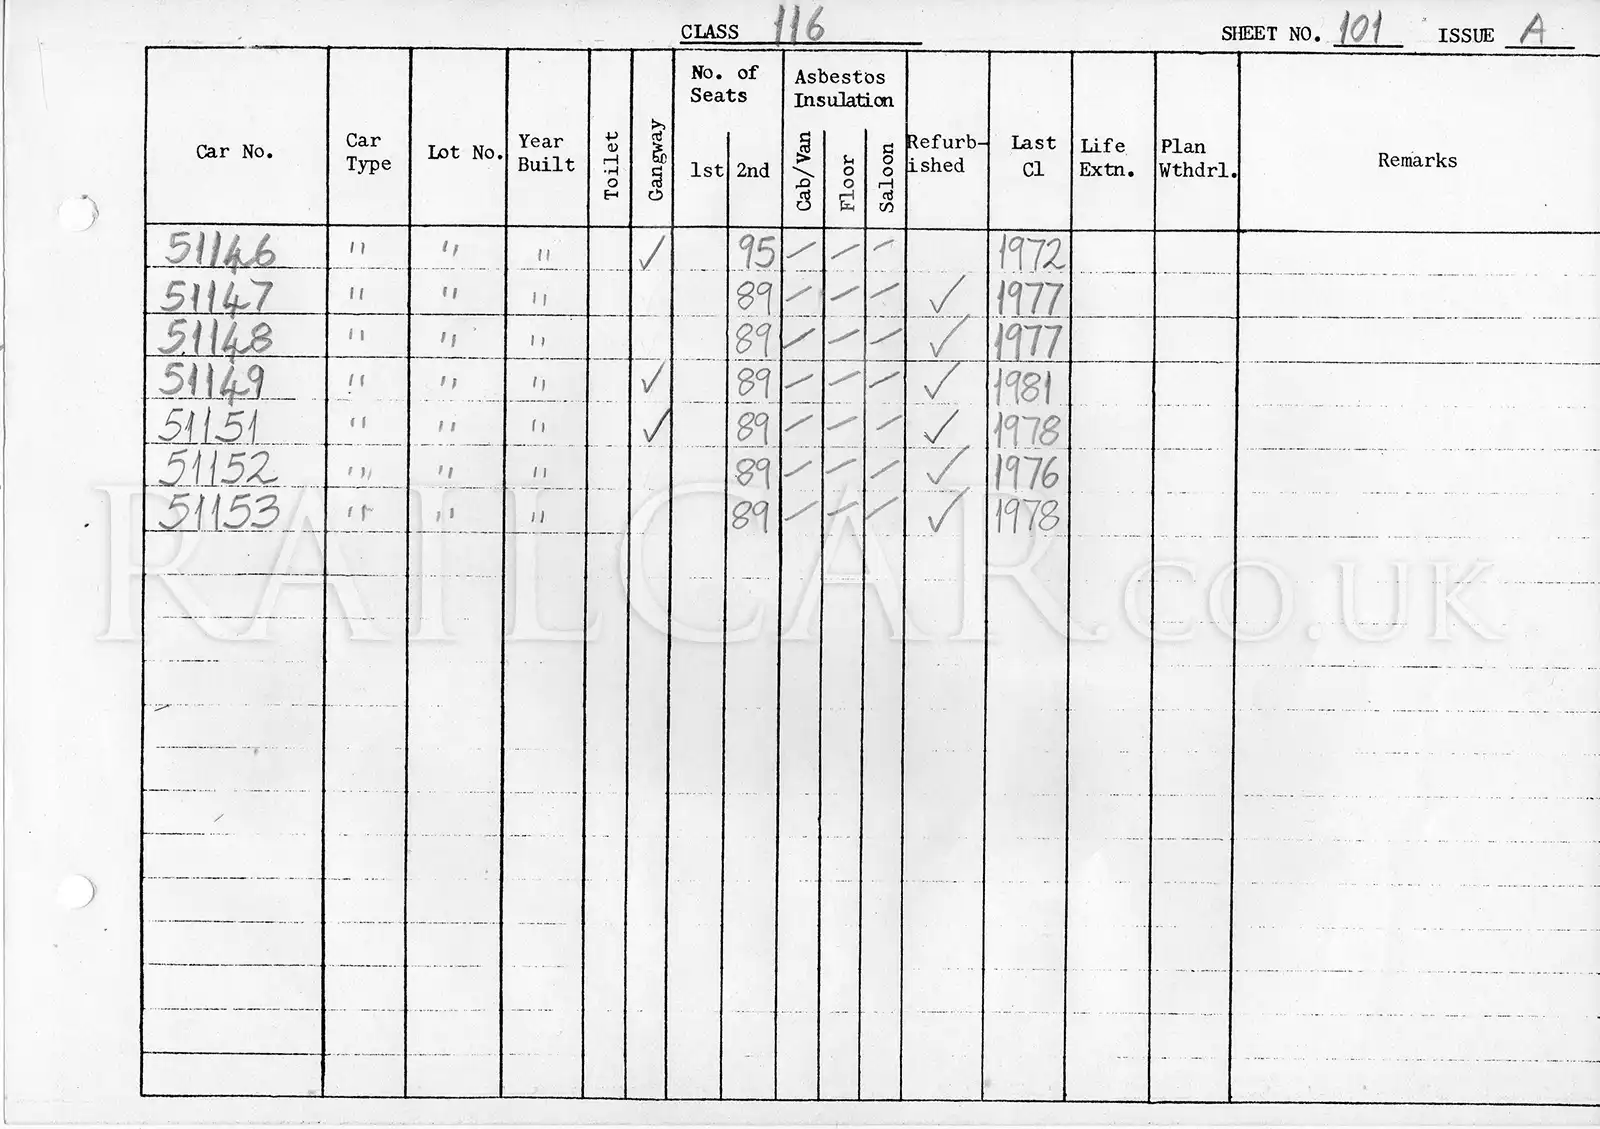 CLASS 116 SHEET NO. 101 ISSUE A
Car No. Car Type Lot No. Year Built Toilet Gangway No. of Seats 1st 2nd Asbestos Insulation Cab/Van Floor Saloon Refurb-ished Last Cl Life Extn. Plan Wthdrl. Remarks
51146 " " " ✓ 95 – – – 1972
51147 " " " 89 – – – ✓ 1977
51148 " " " 89 – – – ✓ 1977
51149 " " " ✓ 89 – – – ✓ 1981
51151 " " " ✓ 89 – – – ✓ 1978
51152 " " " 89 – – – ✓ 1976
51153 " " " 89 – – – ✓ 1978
RAILCAR.CO.UK